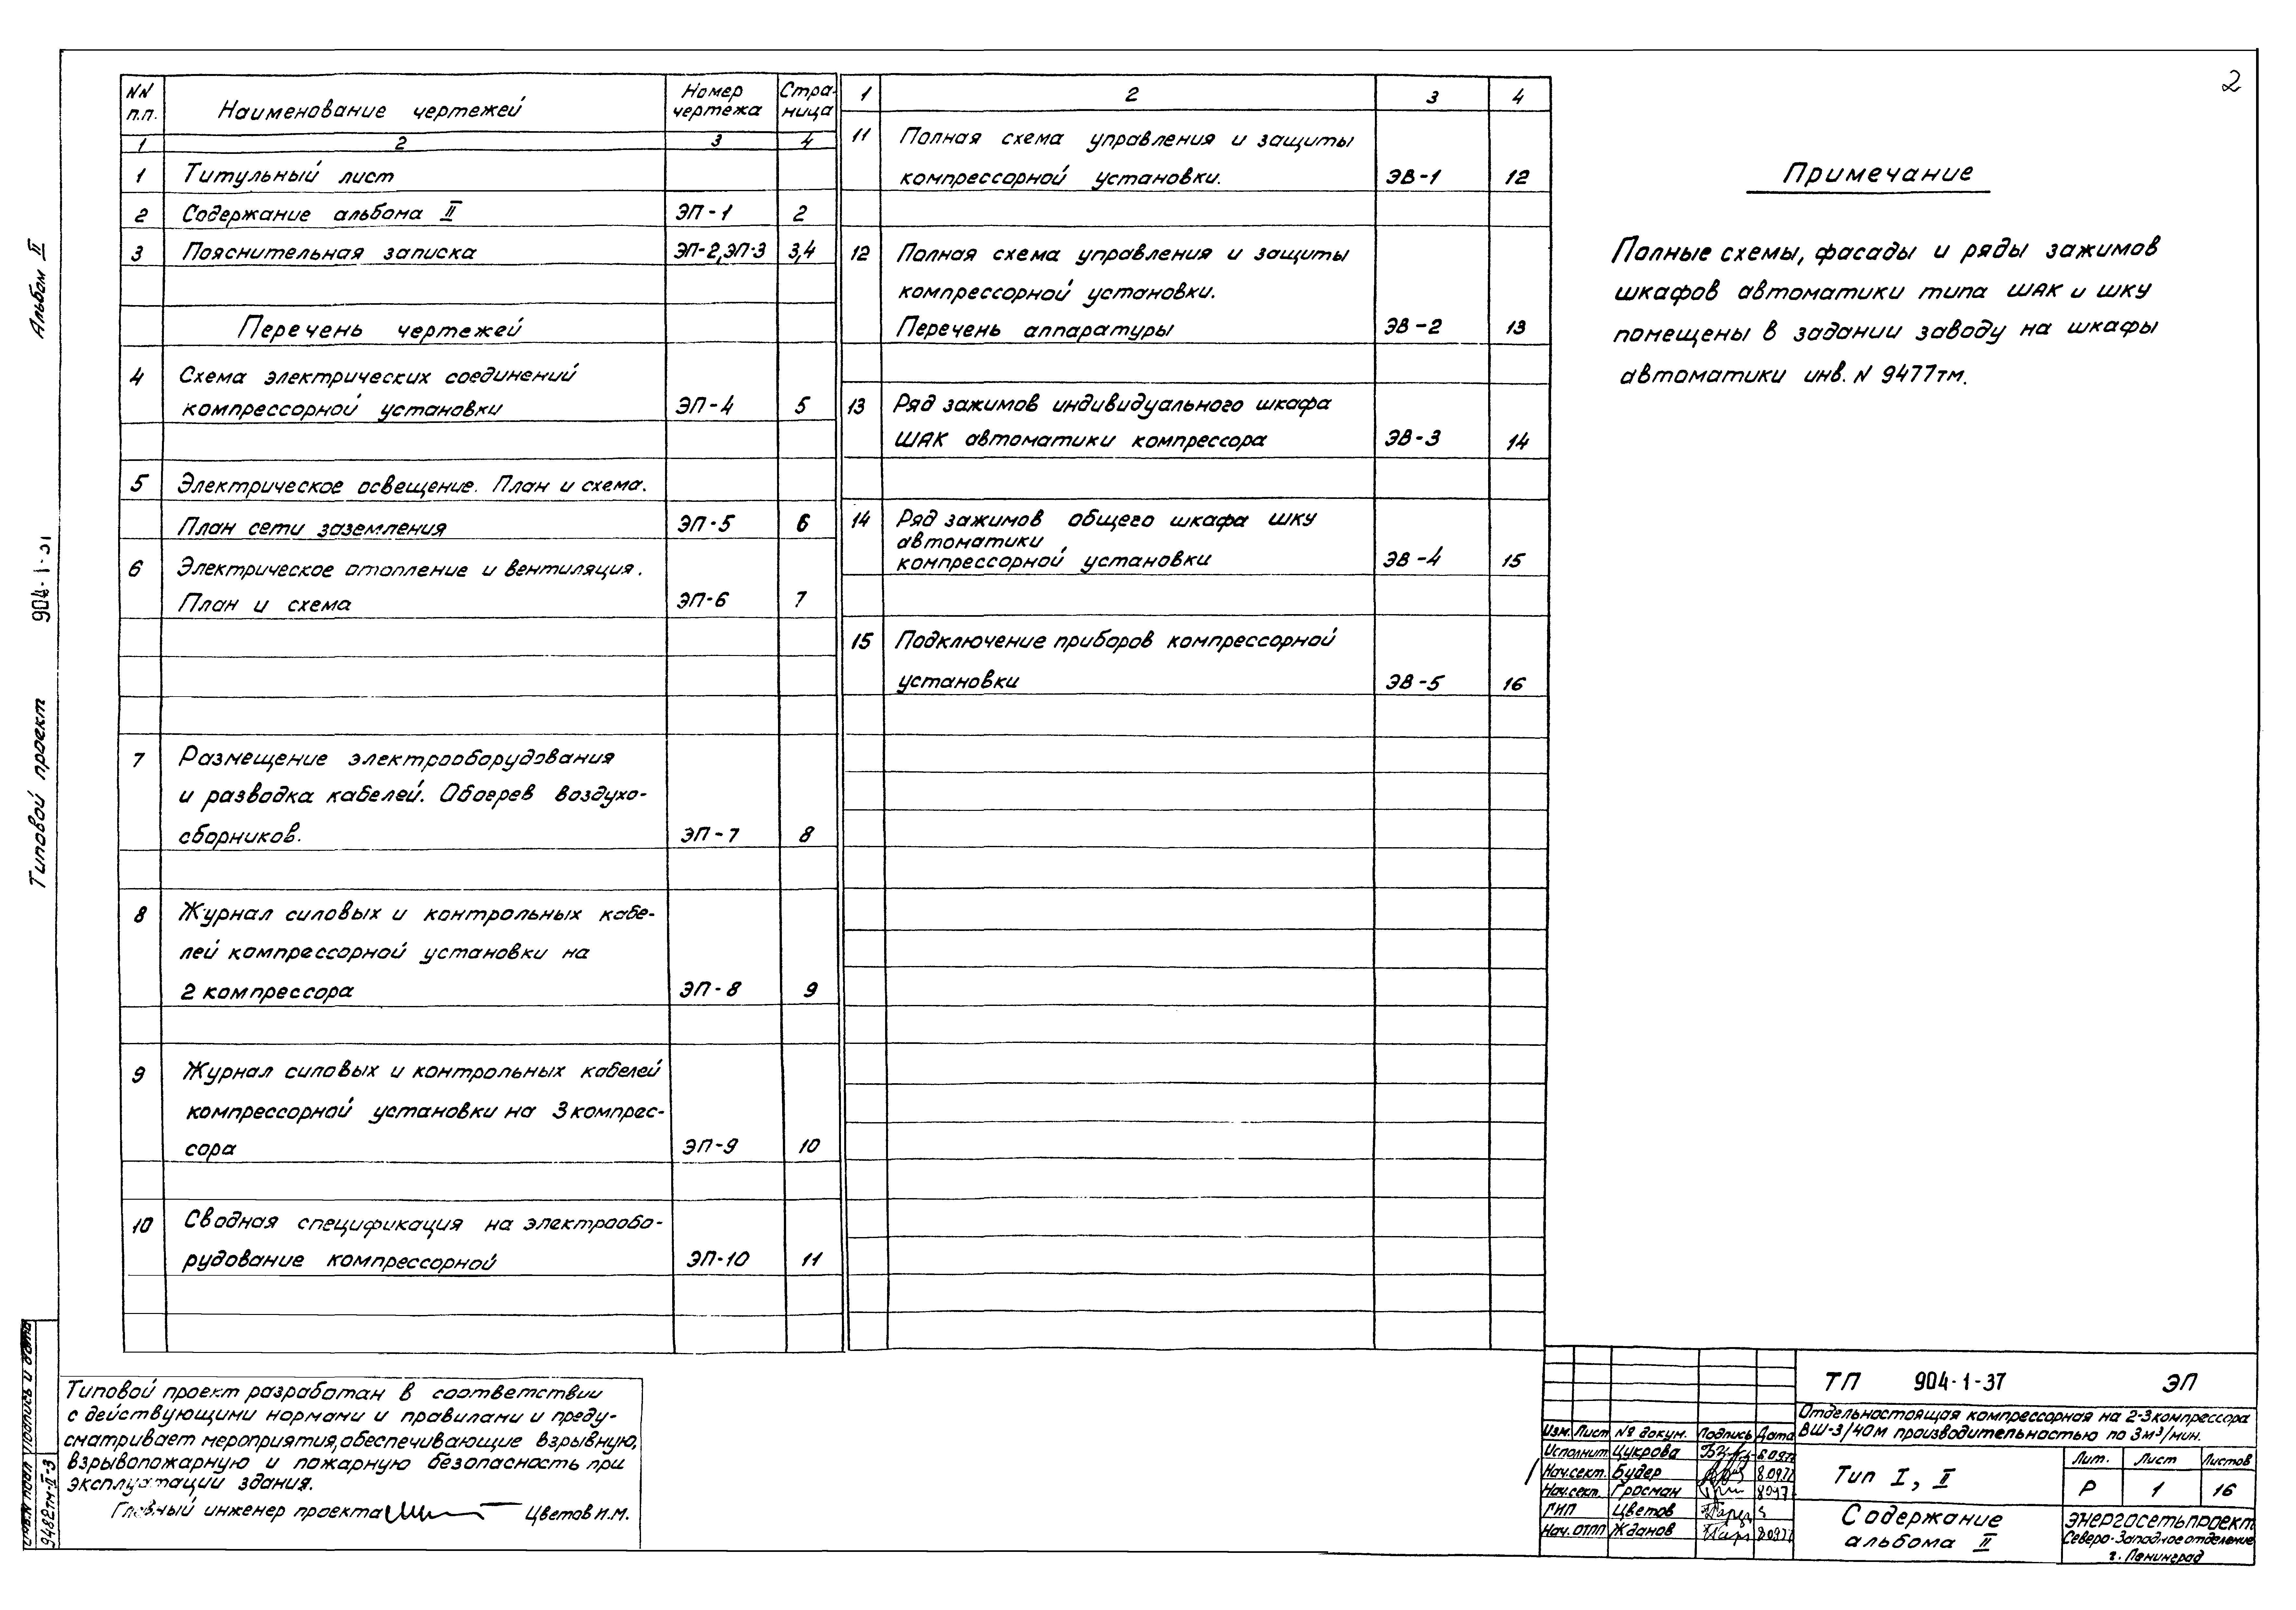 2
Альбом II
904-1-37
Типовой проект
NN п.п.
Наименование чертежей
Номер чертежа
Страница
1 2 3 4
1 Титульный лист
2 Содержание альбома II ЭП-1 2
3 Пояснительная записка ЭП-2,ЭП-3 3,4
Перечень чертежей
4 Схема электрических соединений
компрессорной установки ЭП-4 5
5 Электрическое освещение. План и схема.
План сети заземления ЭП-5 6
6 Электрическое отопление и вентиляция.
План и схема ЭП-6 7
7 Размещение электрооборудования
и разводка кабелей. Обогрев воздухо-
сборников. ЭП-7 8
8 Журнал силовых и контрольных кабе-
лей компрессорной установки на
2 компрессора ЭП-8 9
9 Журнал силовых и контрольных кабелей
компрессорной установки на 3 компрес-
сора ЭП-9 10
10 Сводная спецификация на электрообо-
рудование компрессорной ЭП-10 11
1 2 3 4
11 Полная схема управления и защиты
компрессорной установки. ЭВ-1 12
12 Полная схема управления и защиты
компрессорной установки.
Перечень аппаратуры ЭВ-2 13
13 Ряд зажимов индивидуального шкафа
ШАК автоматики компрессора ЭВ-3 14
14 Ряд зажимов общего шкафа ШКУ
автоматики
компрессорной установки ЭВ-4 15
15 Подключение приборов компрессорной
установки ЭВ-5 16
Примечание
Полные схемы, фасады и ряды зажимов
шкафов автоматики типа ШАК и ШКУ
помещены в задании заводу на шкафы
автоматики инв. N 9477тм.
Типовой проект разработан в соответствии
с действующими нормами и правилами и преду-
сматривает мероприятия, обеспечивающие взрывную,
взрывопожарную и пожарную безопасность при
эксплуатации здания.
Главный инженер проекта Цветов И.М.
Инв.N подл Подпись и дата
9482тм-II-3
ТП 904-1-37 ЭП
Отдельностоящая компрессорная на 2-3 компрессора
ВШ-3/40м производительностью по 3м³/мин.
Изм. Лист № докум. Подпись Дата
Исполнит. Цукрова
Нач.сект. Будер
Нач.сект. Гросман
ГИП Цветов
Нач. ОТПП Жданов
Тип I, II
Лит. Лист Листов
Р 1 16
Содержание
альбома II
Энергосетьпроект
Северо-Западное отделение
г. Ленинград